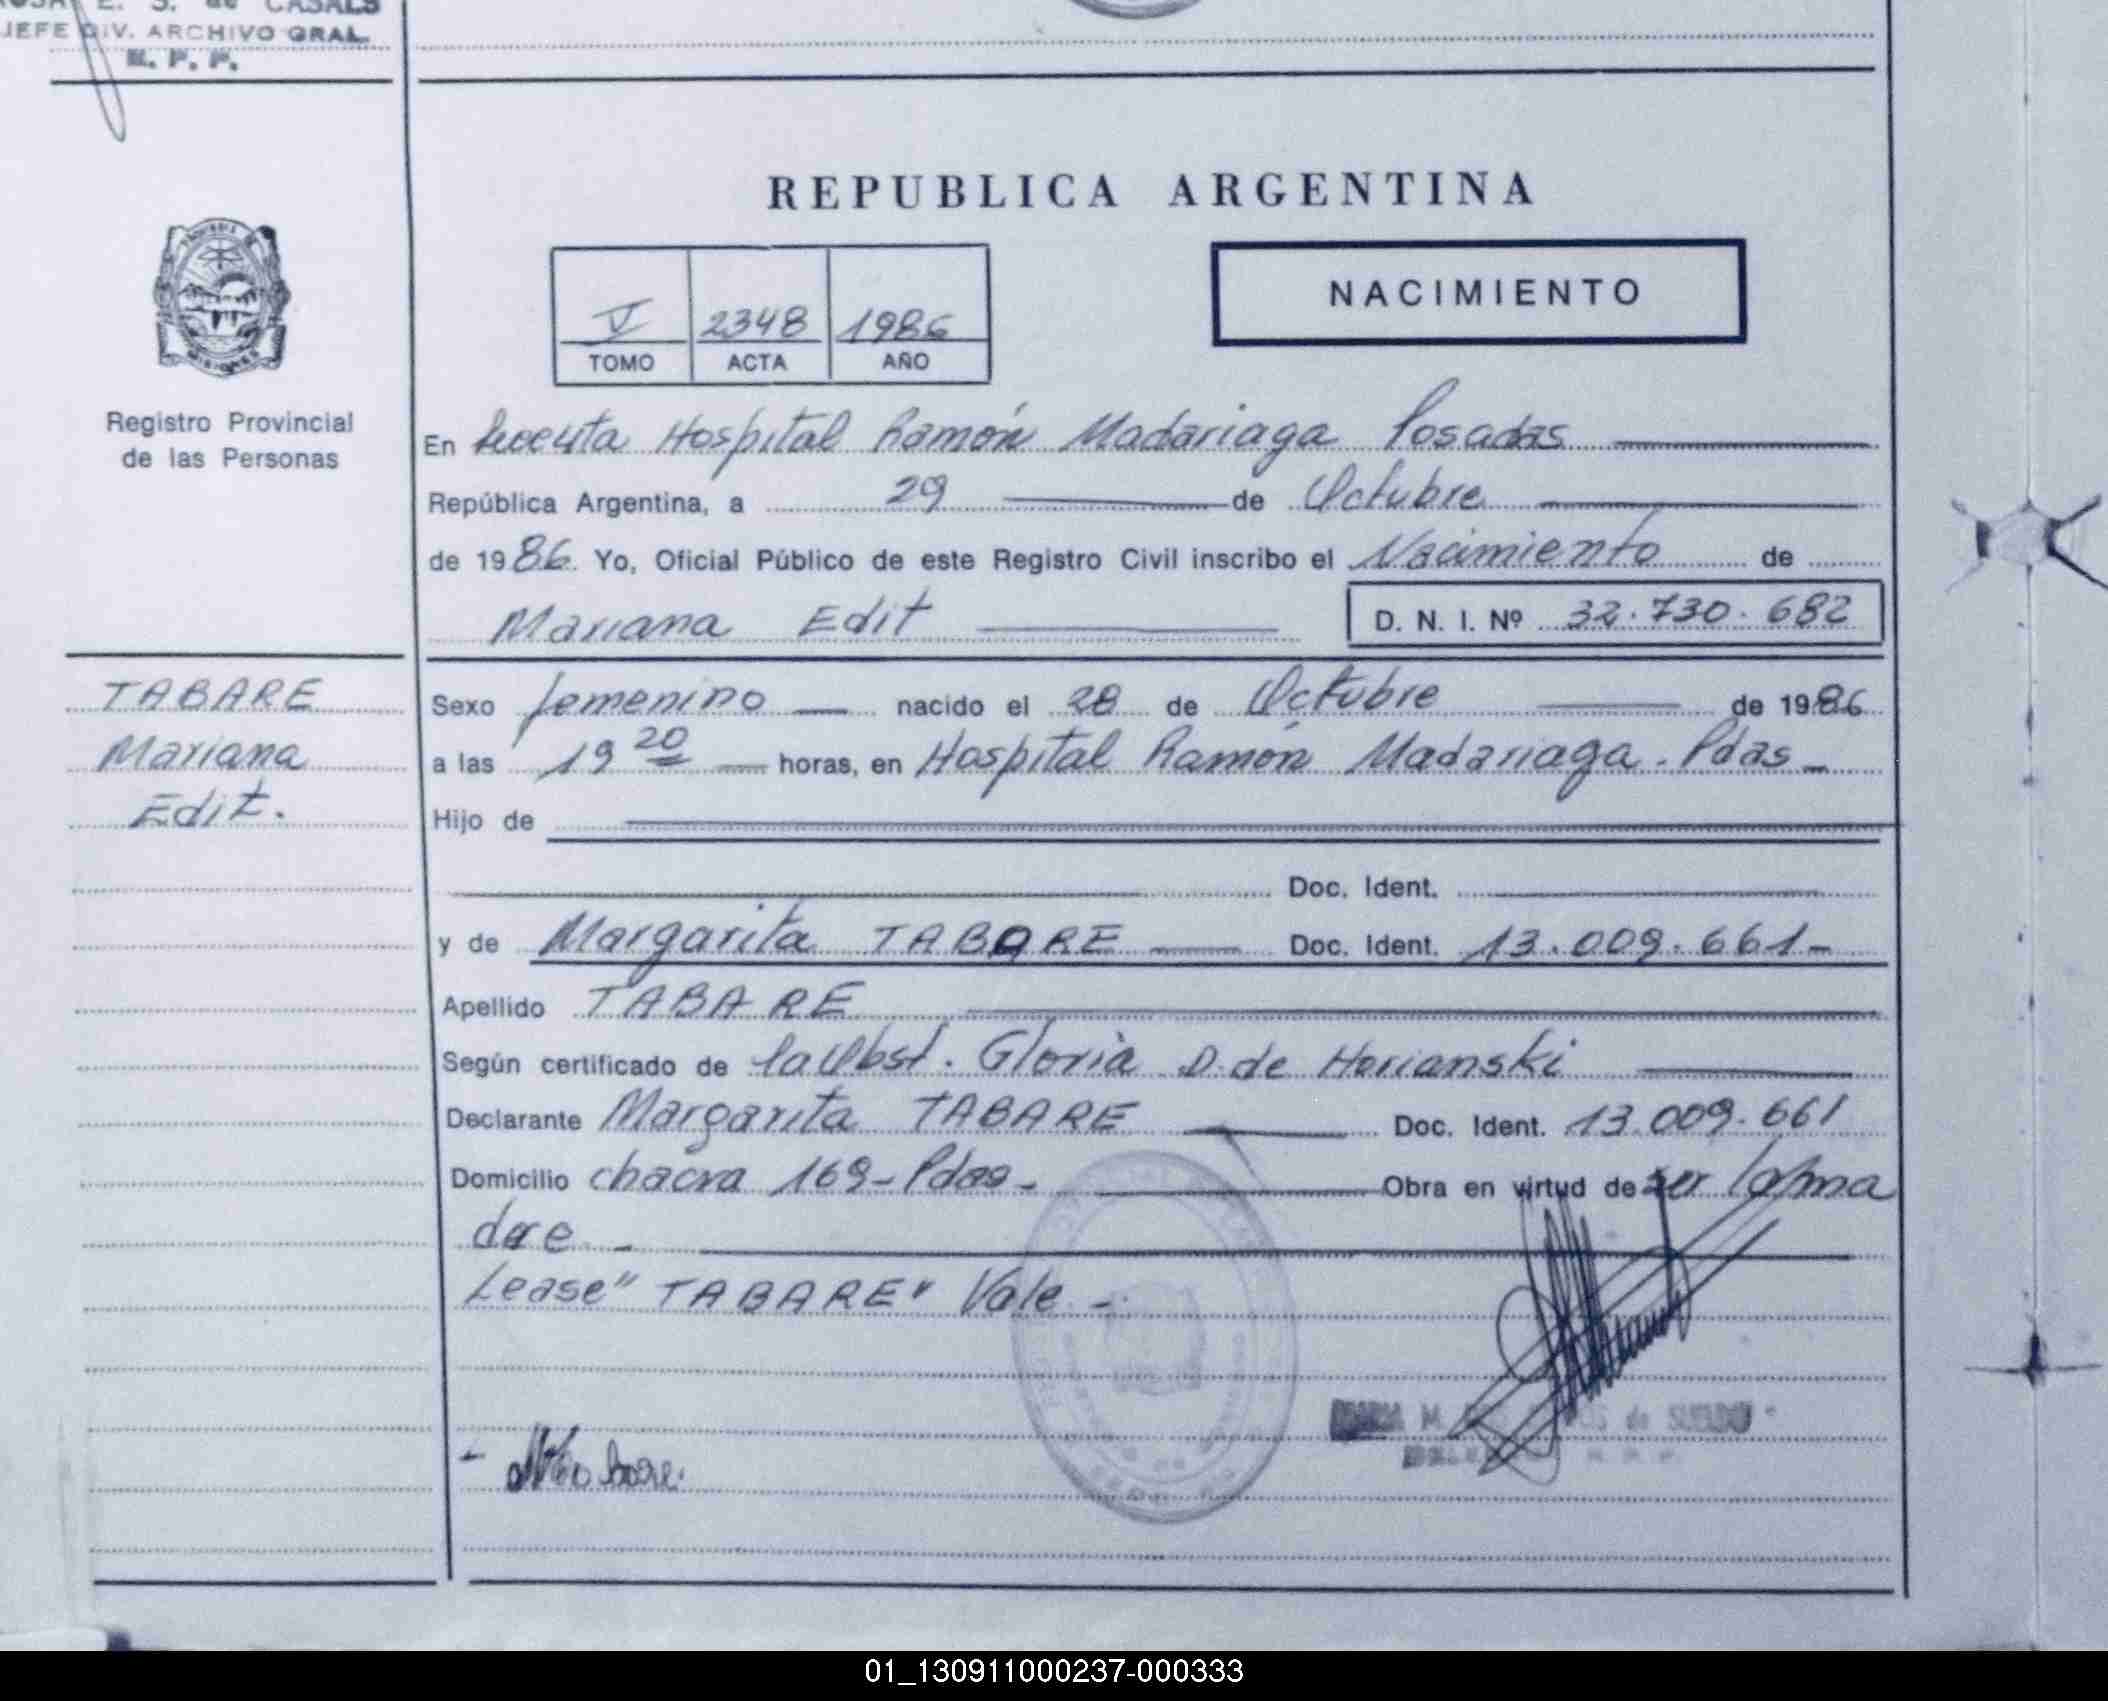 E. S. de CASALS
JEFE DIV. ARCHIVO GRAL.
R. P. P.
REPUBLICA ARGENTINA
NACIMIENTO
V 2348 1986
TOMO ACTA AÑO
Registro Provincial
de las Personas
En Hospital Ramón Madariaga Posadas
República Argentina, a 29 de Octubre
de 1986. Yo, Oficial Público de este Registro Civil inscribo el Nacimiento de
Mariana Edit D. N. I. Nº 32.730.682
TABARE
Mariana
Edit.
Sexo femenino nacido el 28 de Octubre de 1986
a las 19 20 horas, en Hospital Ramón Madariaga. Pdas
Hijo de
Doc. Ident.
y de Margarita TABARE Doc. Ident. 13.009.661
Apellido TABARE
Según certificado de la Obst. Gloria D. de Horianski
Declarante Margarita TABARE Doc. Ident. 13.009.661
Domicilio chacra 169-Pdas- Obra en virtud de ser la ma
dre
Lease "TABARE" Vale -
01_130911000237-000333